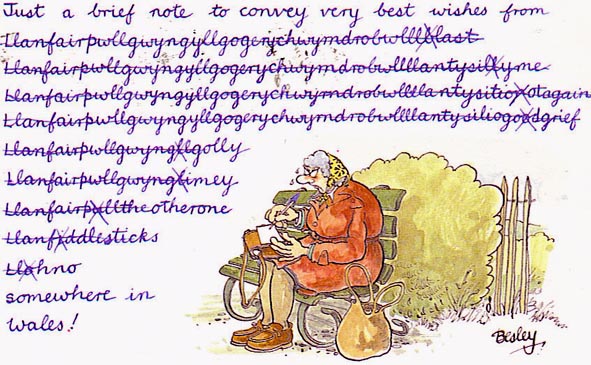 Just a brief note to convey very best wishes from
Llanfairpwllgwyngyllgogerychwyrndrobwlllblast
Llanfairpwllgwyngyllgogerychwyrndrobwllllantysillyme
Llanfairpwllgwyngyllgogerychwyrndrobwllllantysilionotagain
Llanfairpwllgwyngyllgogerychwyrndrobwllllantysiliogoodgrief
Llanfairpwllgwyngyllgolly
Llanfairpwllgwyngblimey
Llanfairpulltheotherone
Llanfiddlesticks
Llohno
somewhere in
Wales!
Besley